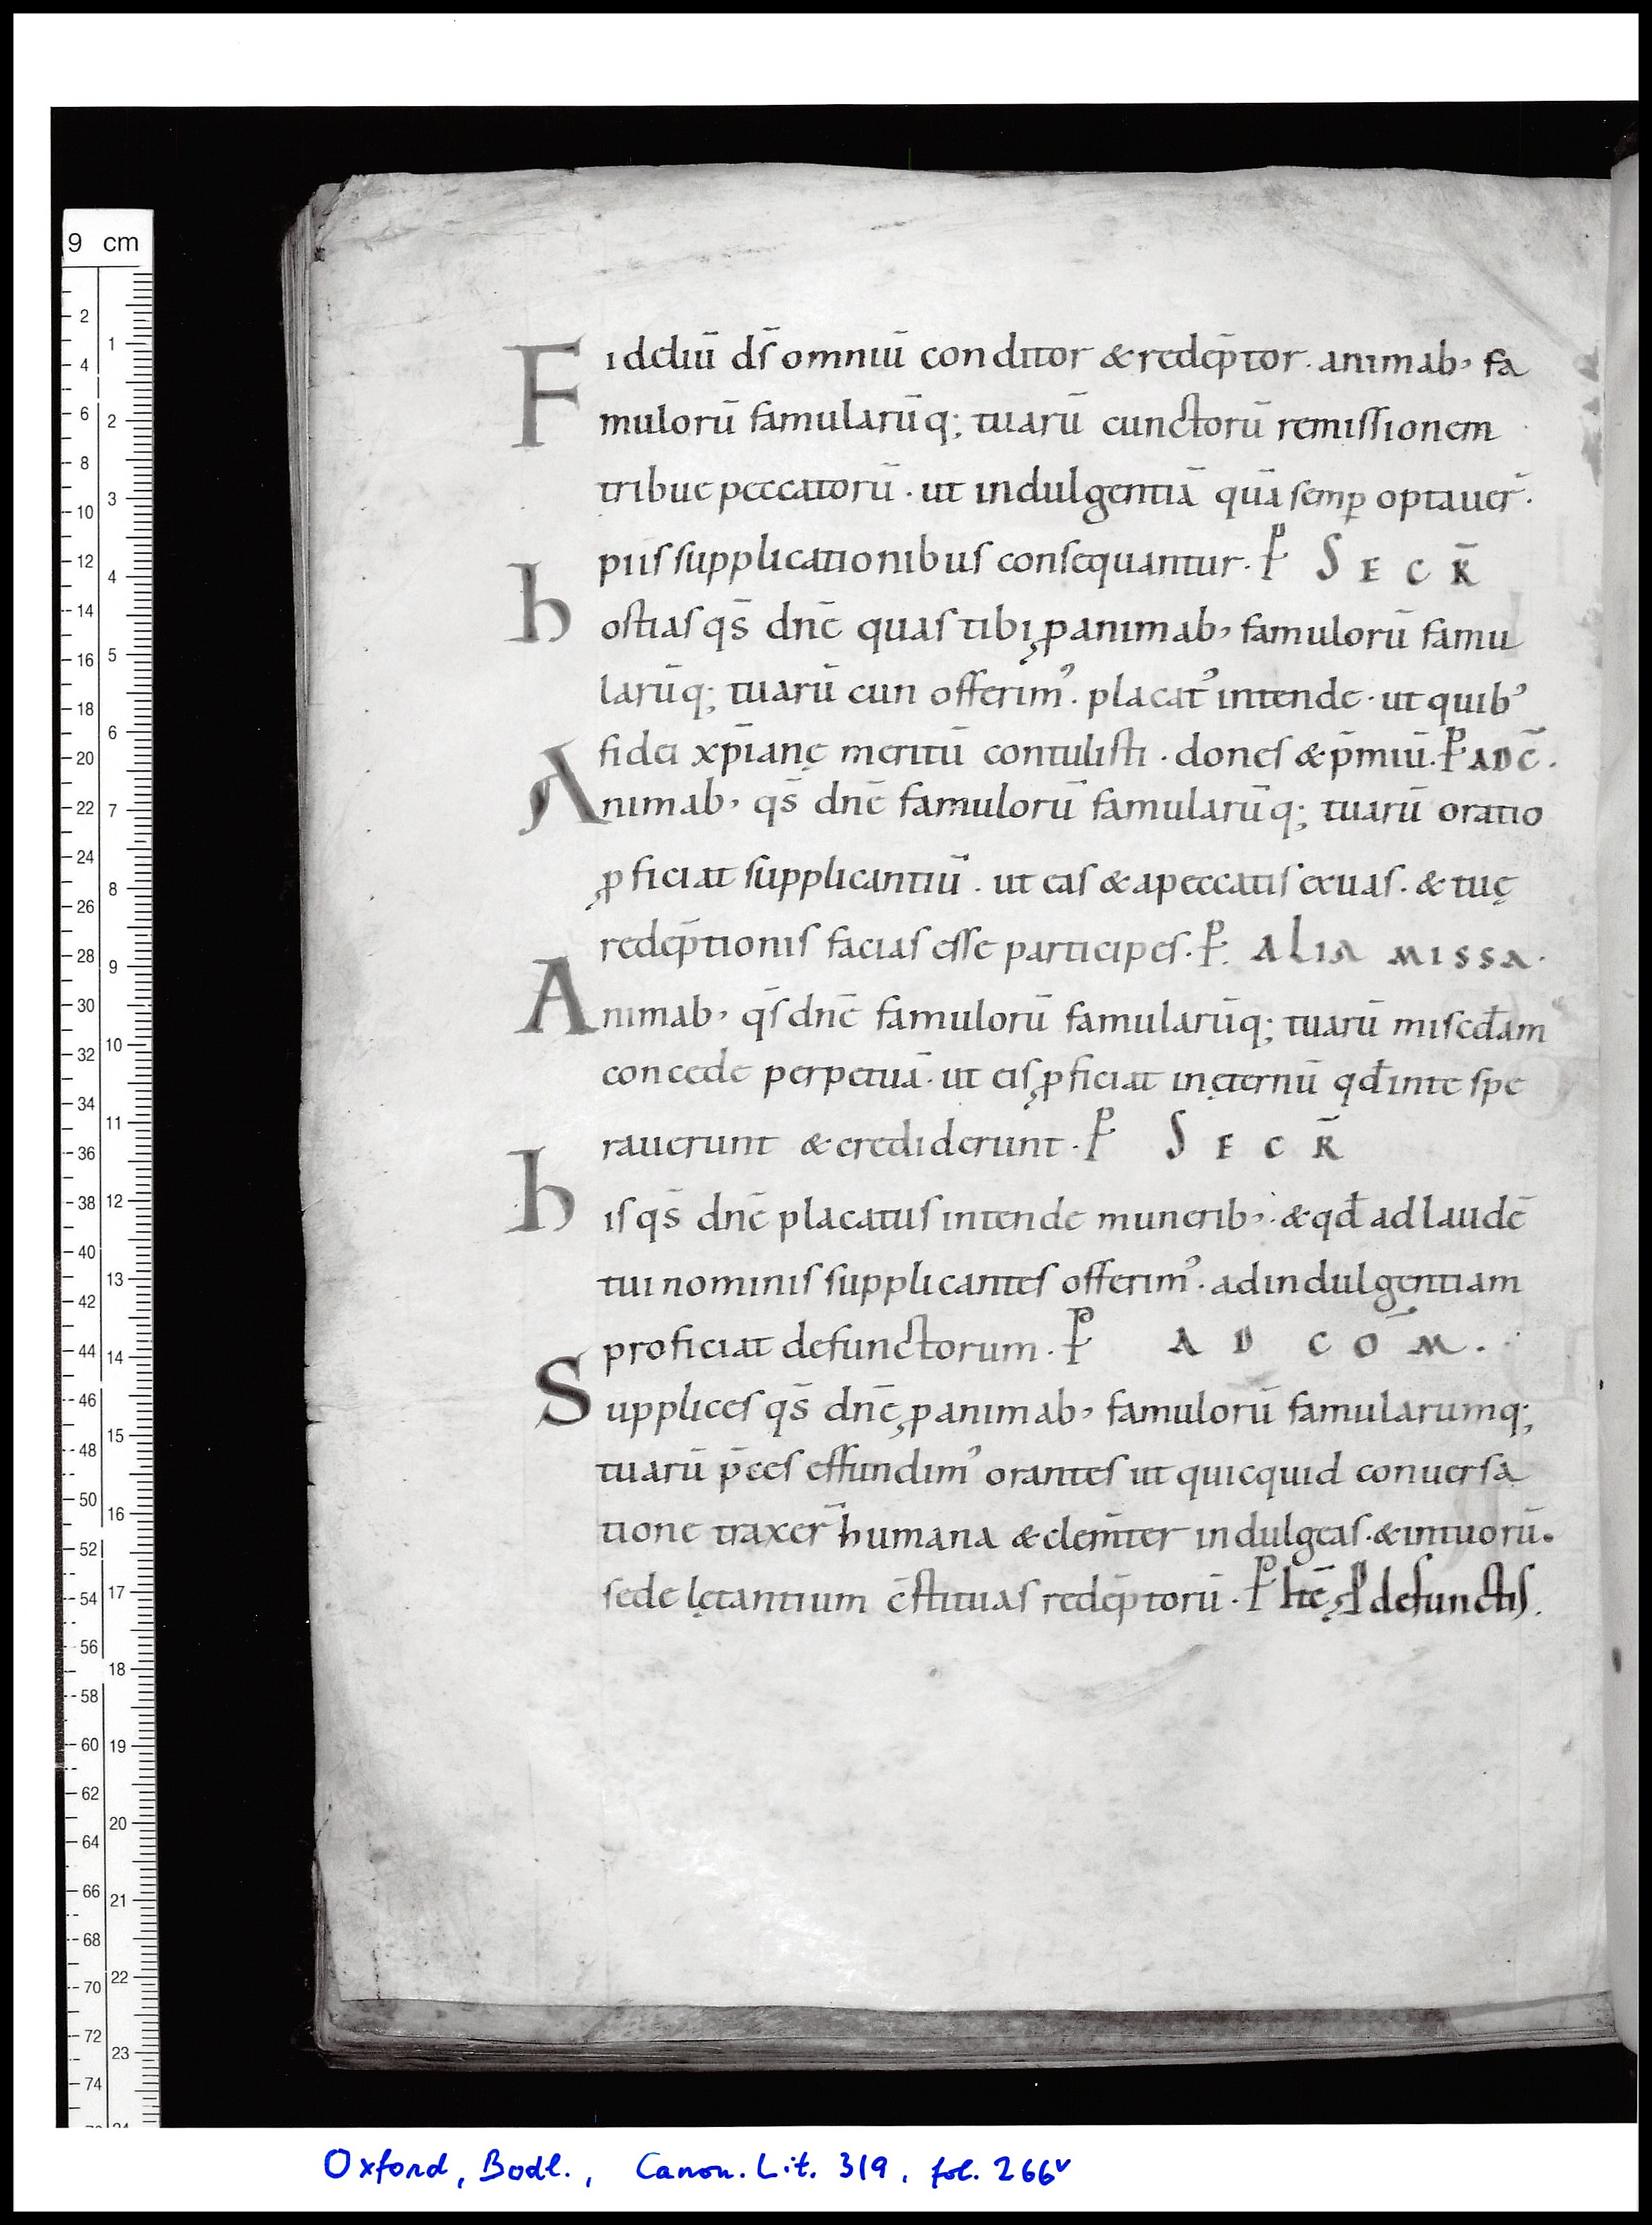 Fideliū dſ̄ omniū conditor & redep̄tor. animab, fa
mulorū famularūq; tuarū cunctorū remiſſionem
tribue peccatorū. ut indulgentiā quā ſemꝑ optauer̄.
piiſ ſupplicationibuſ conſequantur. P̱ SECR̄
hoſtiaſ qs̄ dnē quaſ tibi ꝓ animab, famulorū famu
larūq; tuarū cun offerim'. placat' intende. ut quib'
fidei xp̄ianę meritū contuliſti. doneſ & p̄miū. P̱ AD C̄.
Animab, qs̄ dnē famulorū famularūq; tuarū oratio
ꝓficiat ſupplicantiū. ut eaſ & apeccatiſ exuaſ. & tuę
redep̄tioniſ faciaſ eſſe participeſ. P̱. ALIA MISSA.
Animab, qſ̄ dnē famulorū famularūq; tuarū miſcd̄am
concede perpetuā. ut eiſ ꝓficiat in ęternū qđ inte ſpe
rauerunt & crediderunt. P̱ SECR̄
hiſ qs̄ dnē placatuſ intende munerib,. & qđ ad laudē
tui nominiſ ſupplicanteſ offerim'. ad indulgentiam
proficiat defunctorum. P̱ AD COM̄.
Suppliceſ qs̄ dnē ꝓ animab, famulorū famularumq;
tuarū p̄ceſ effundim' oranteſ ut quicquid conuerſa
tione traxer̄ humana & clem̄ter indulgeaſ. & intuorū.
ſede lętantium c̄ſtituaſ redep̄torū. P̱ Itē ꝓ defunctiſ.
Oxford, Bodl., Canon. Lit. 319, fol. 266v
9 cm
2
4
6
8
10
12
14
16
18
20
22
24
26
28
30
32
34
36
38
40
42
44
46
48
50
52
54
56
58
60
62
64
66
68
70
72
74
1
2
3
4
5
6
7
8
9
10
11
12
13
14
15
16
17
18
19
20
21
22
23